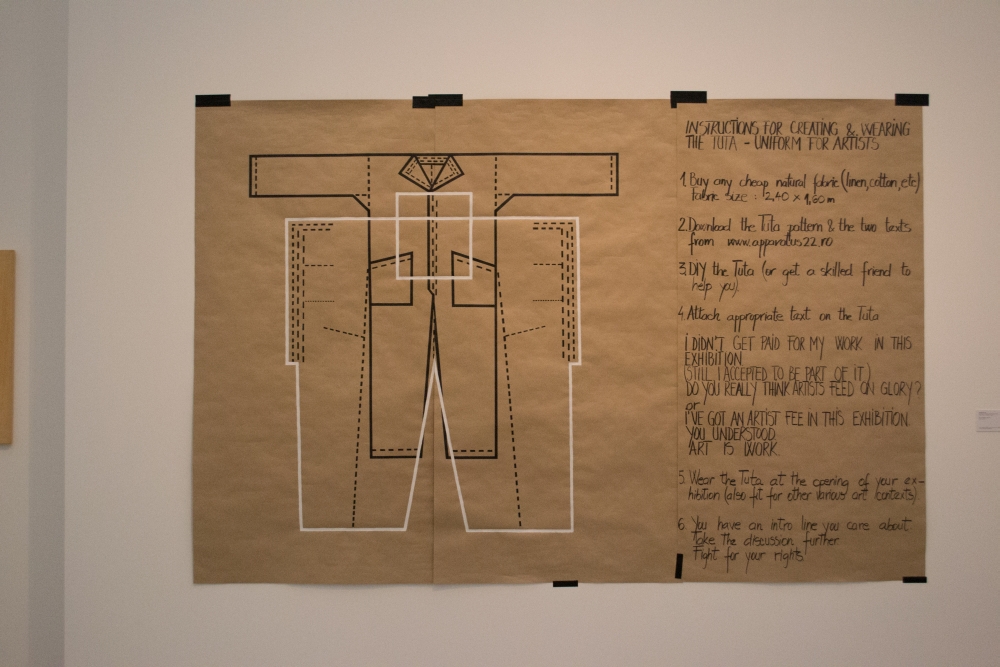 INSTRUCTIONS FOR CREATING & WEARING
THE TUTA - UNIFORM FOR ARTISTS
1. Buy any cheap natural fabric (linen, cotton, etc)
fabric size : 2,40 x 1,60 m
2. Download the Tuta pattern & the two texts
from www.apparatus22.ro
3. DIY the Tuta (or get a skilled friend to
help you).
4. Attach appropriate text on the Tuta
I DIDN'T GET PAID FOR MY WORK IN THIS
EXHIBITION
(STILL I ACCEPTED TO BE PART OF IT.)
DO YOU REALLY THINK ARTISTS FEED ON GLORY?
or
I'VE GOT AN ARTIST FEE IN THIS EXHIBITION.
YOU UNDERSTOOD.
ART IS WORK.
5. Wear the Tuta at the opening of your ex-
hibition (also fit for other various art contexts)
6. You have an intro line you care about.
Take the discussion further.
Fight for your rights.